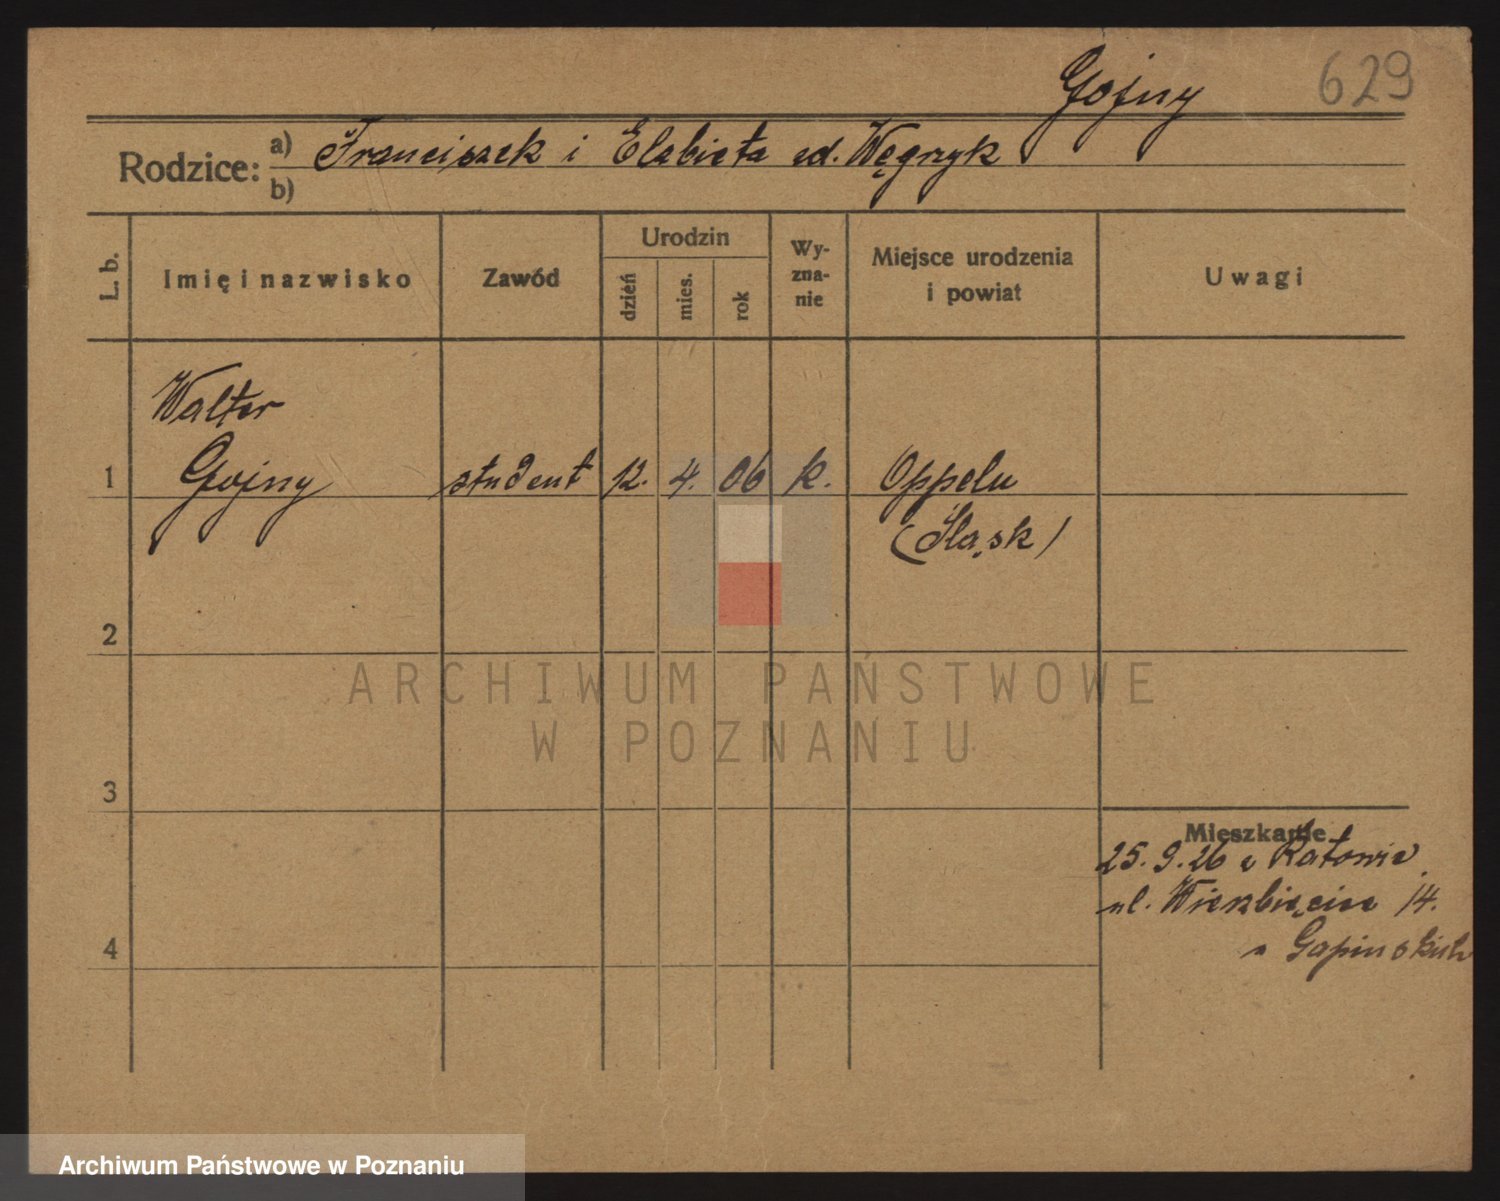 Gojny
629
Rodzice:
a) Franciszek i Elżbieta zd. Węgrzyk
b)
L. b.
Imię i nazwisko
Zawód
Urodzin
dzień
mies.
rok
Wy-
zna-
nie
Miejsce urodzenia
i powiat
Uwagi
Walter
1 Gojny student 12. 4. 06 k. Oppeln
(Śląsk)
2
3
4
Mieszkanie
25. 9. 26 z Katowic
ul. Wierzbięcice 14.
u Gapińskich
ARCHIWUM PAŃSTWOWE
W POZNANIU
Archiwum Państwowe w Poznaniu